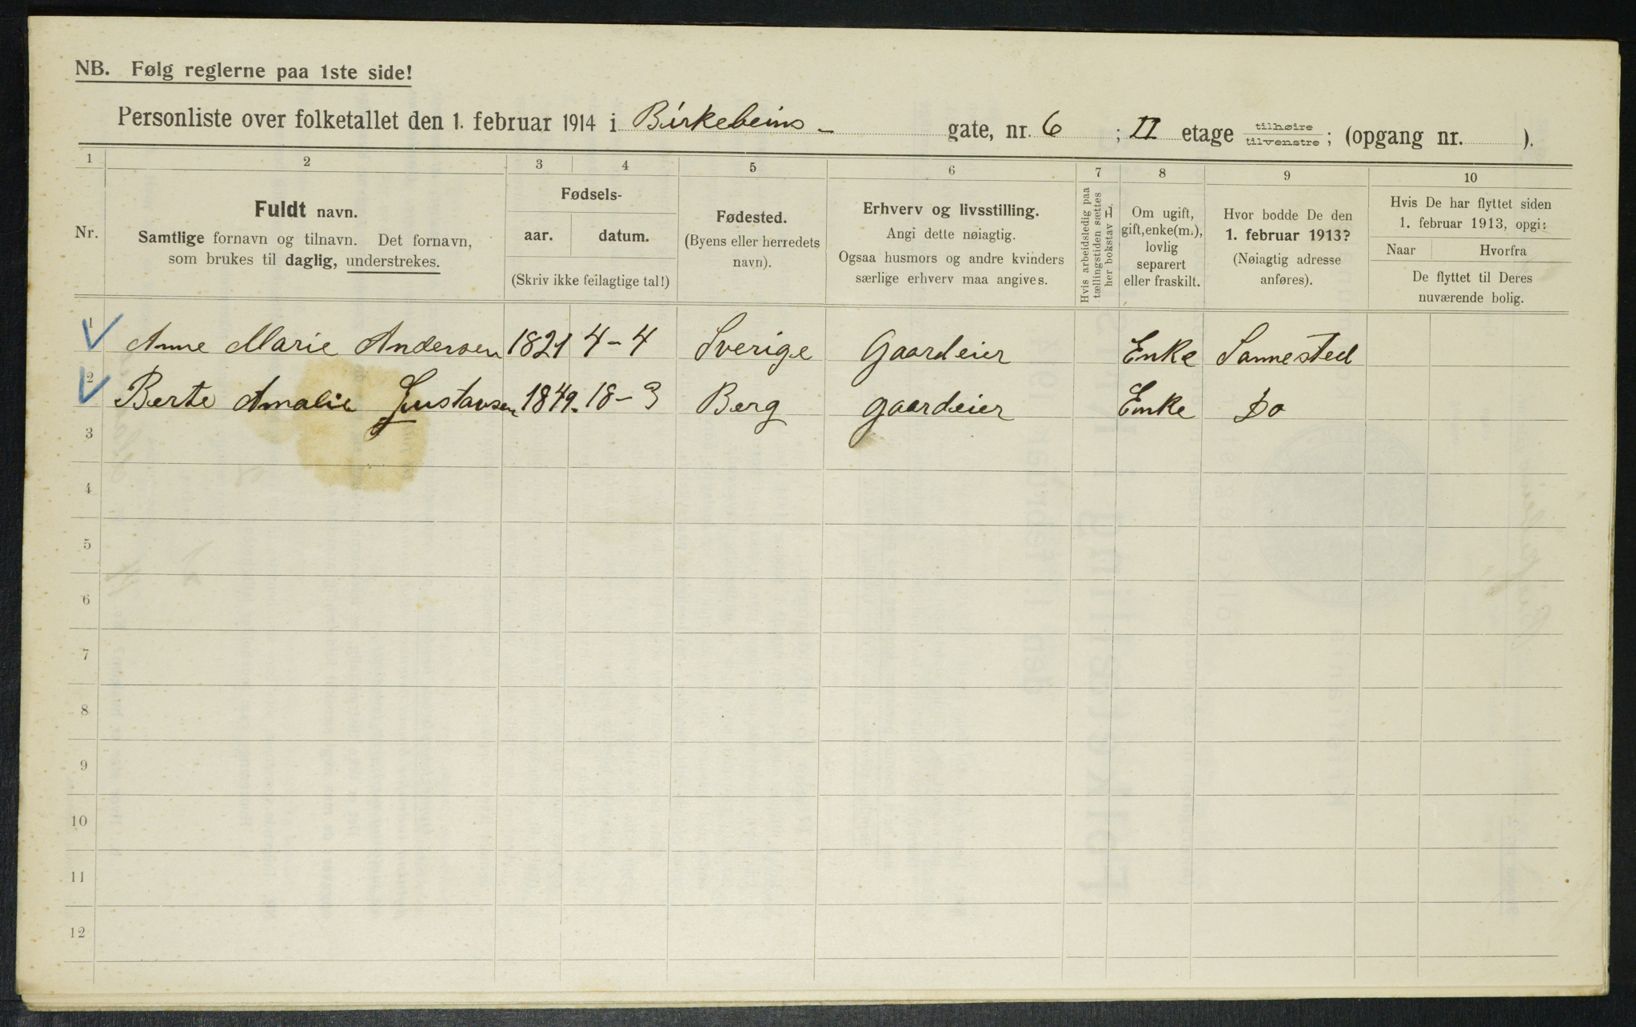 NB. Følg reglerne paa 1ste side!
Personliste over folketallet den 1. februar 1914 i Birkebeins- gate, nr. 6 ; II etage tilhøire tilvenstre ; (opgang nr. ).
1 2 3 4 5 6 7 8 9 10
Nr.
Fuldt navn.
Samtlige fornavn og tilnavn. Det fornavn,
som brukes til daglig, understrekes.
Fødsels-
aar. datum.
(Skriv ikke feilagtige tal!)
Fødested.
(Byens eller herredets
navn).
Erhverv og livsstilling.
Angi dette nøiagtig.
Ogsaa husmors og andre kvinders
særlige erhverv maa angives.
Hvis arbeidsledig paa
tællingstiden sættes
her bokstav L.
Om ugift,
gift, enke(m.),
lovlig
separert
eller fraskilt.
Hvor bodde De den
1. februar 1913?
(Nøiagtig adresse
anføres).
Hvis De har flyttet siden
1. februar 1913, opgi:
Naar Hvorfra
De flyttet til Deres
nuværende bolig.
1 Anne Marie Andersen 1821 4-4 Sverige Gaardeier Enke Sannested
2 Berte Amalie Gustavsen 1849. 18-3 Berg gaardeier Enke Do
3
4
5
6
7
8
9
10
11
12